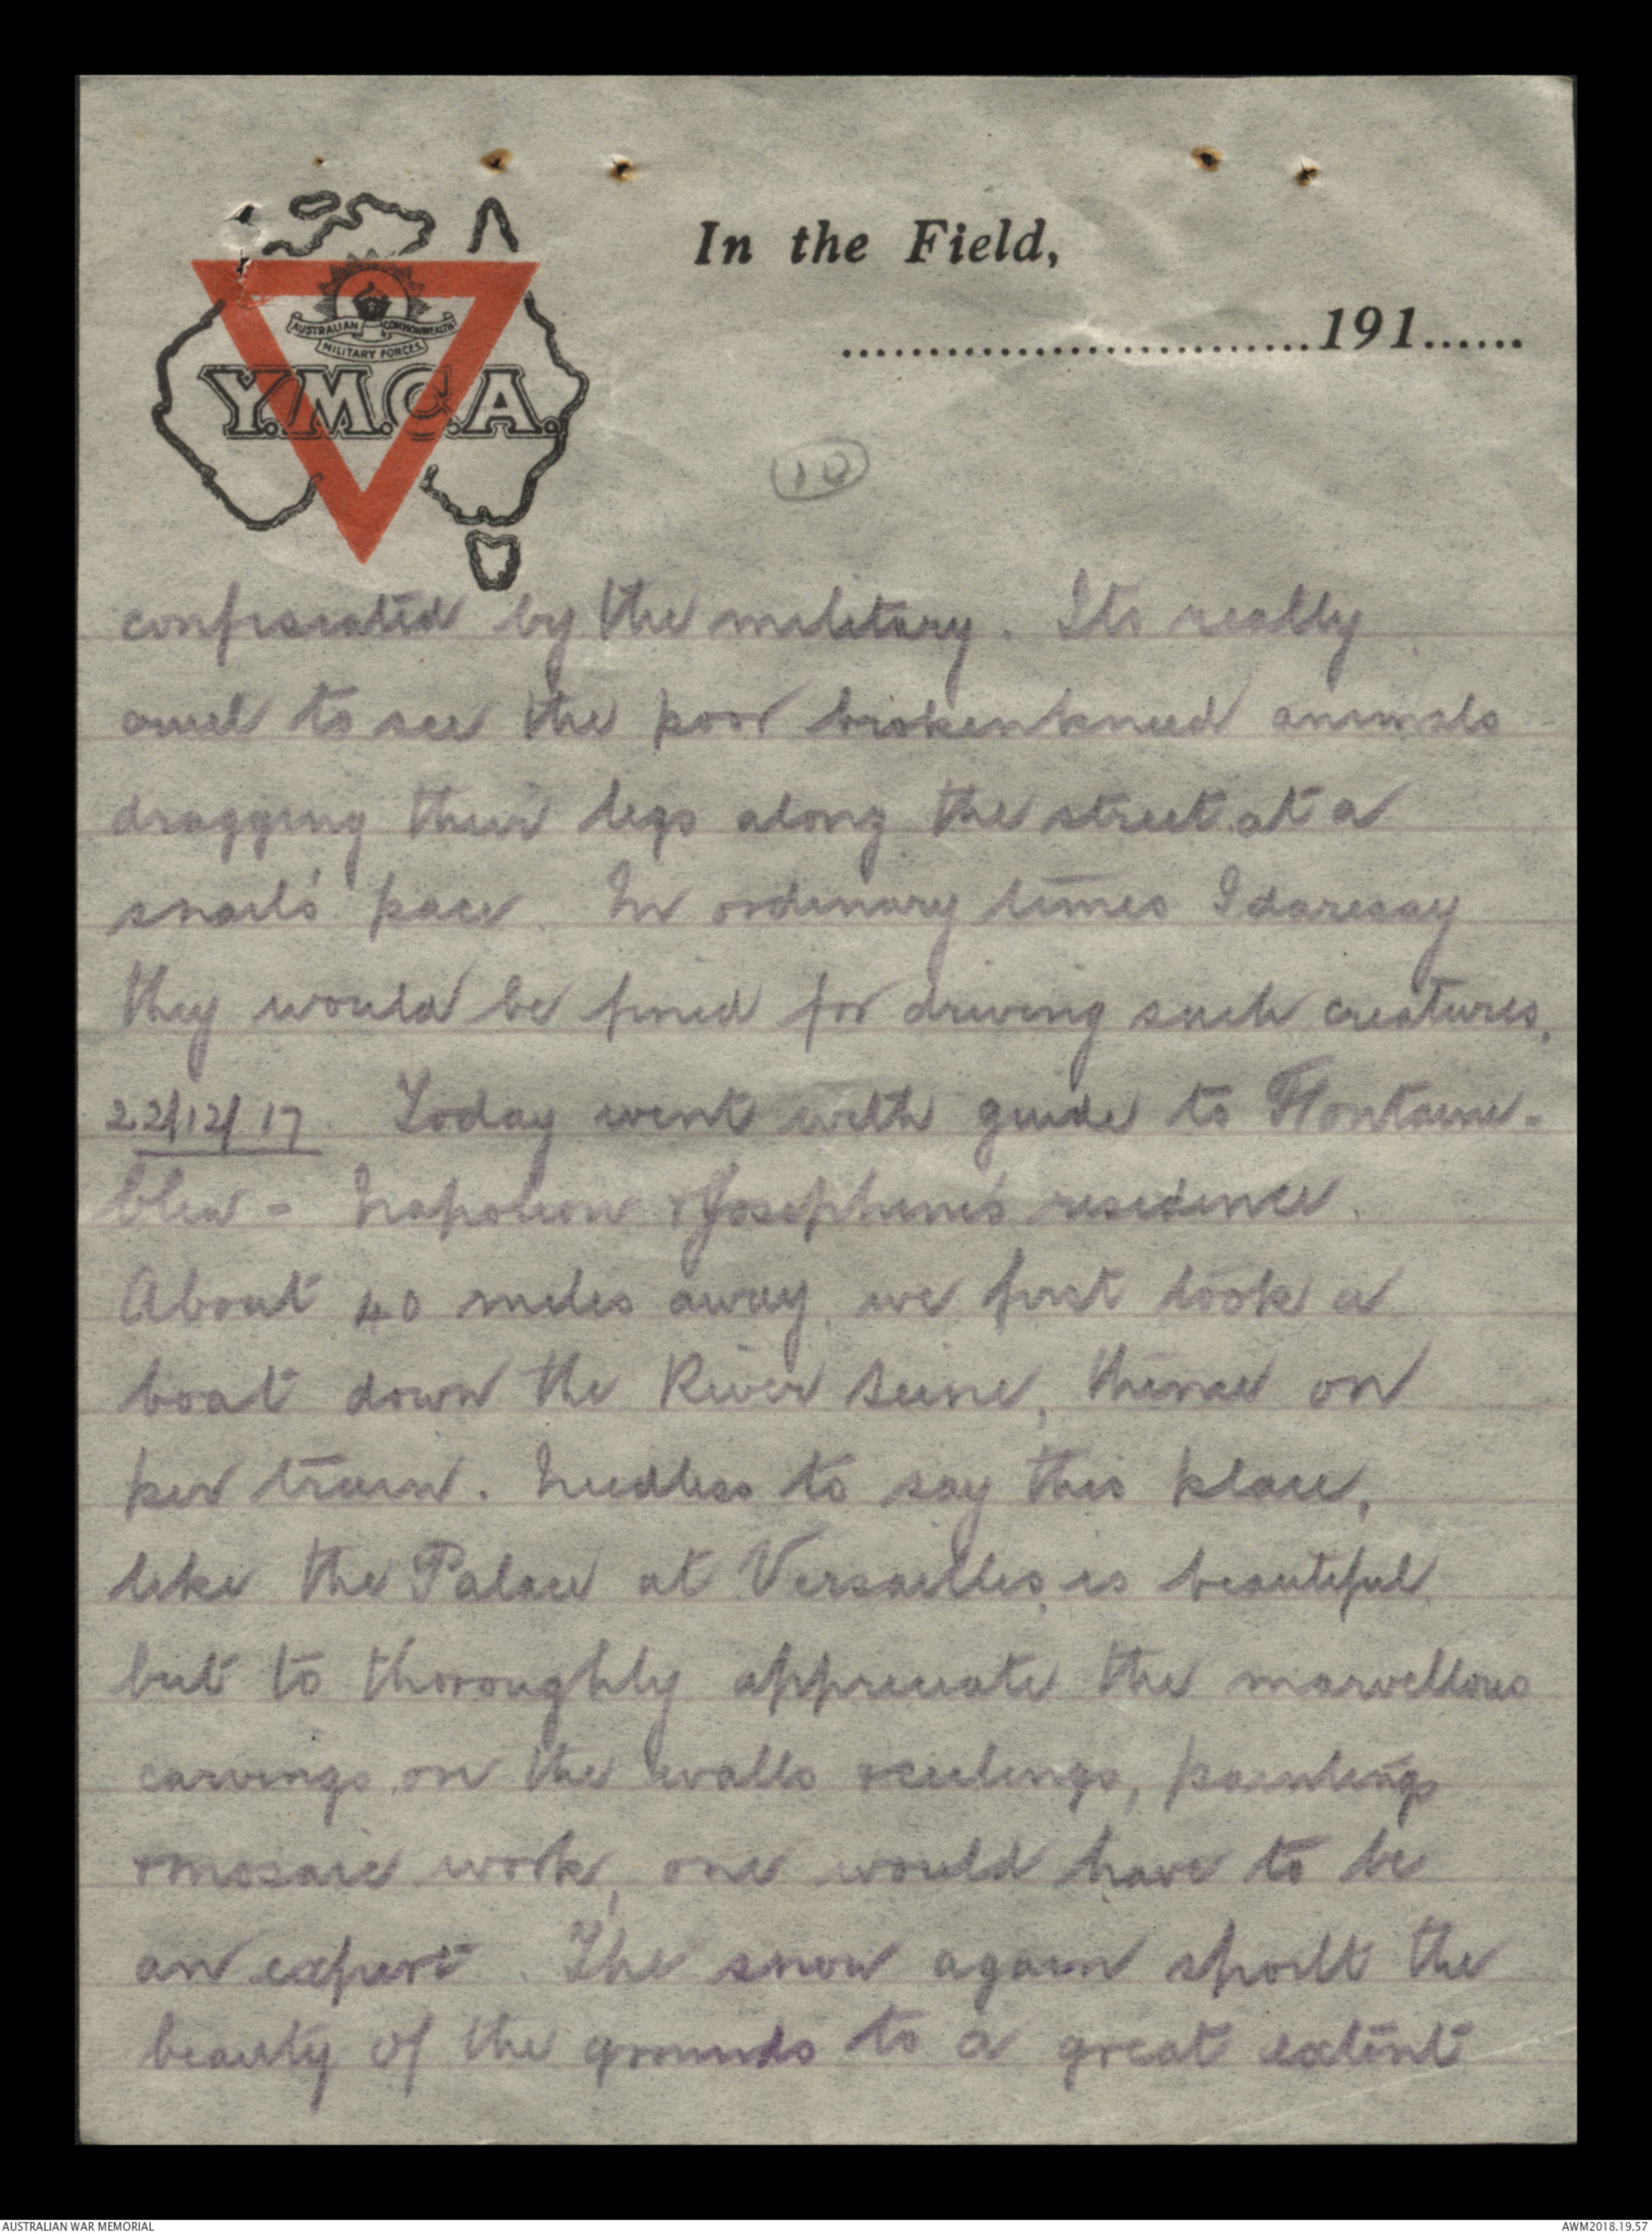 In the Field,
AUSTRALIAN COMMONWEALTH
MILITARY FORCES
.............................191......
Y.M.C.A.
10
confiscated by the military. Its really
cruel to see the poor brokenkneed animals
dragging their legs along the street at a
snail's pace. In ordinary times I daresay
they would be fined for driving such creatures.
22/12/17 Today went with guide to Fontaine-
bleu - Napoleon & Josephine's residence.
About 40 miles away, we first took a
boat down the River Seine, thence on
per train. Needless to say this place,
like the Palace at Versailles, is beautiful
but to thoroughly appreciate the marvellous
carvings on the walls & ceilings, paintings
& mosaic work, one would have to be
an expert. The snow again spoilt the
beauty of the grounds to a great extent
AUSTRALIAN WAR MEMORIAL
AWM2018.19.57